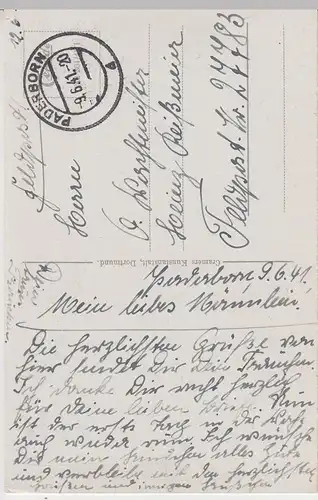 Feldpost
PADERBORN
-9.6.41.-20
Herrn
Heinz Reißmeier
Feldpost. Nr. 27783
Cramers Kunstanstalt, Dortmund.
Paderborn 9.6.41.
Mein liebes Männlein!
Die herzlichsten Grüße von
hier sendet Dir Dein Frauchen.
Ich danke Dir recht herzlich
für Deine lieben Briefe. Nun
ist der erste Tag in der
auch wieder rum. Ich wünsche
Dir mein alles Gute
und verbleibe mit den herzlichsten
Grüßen und innigen